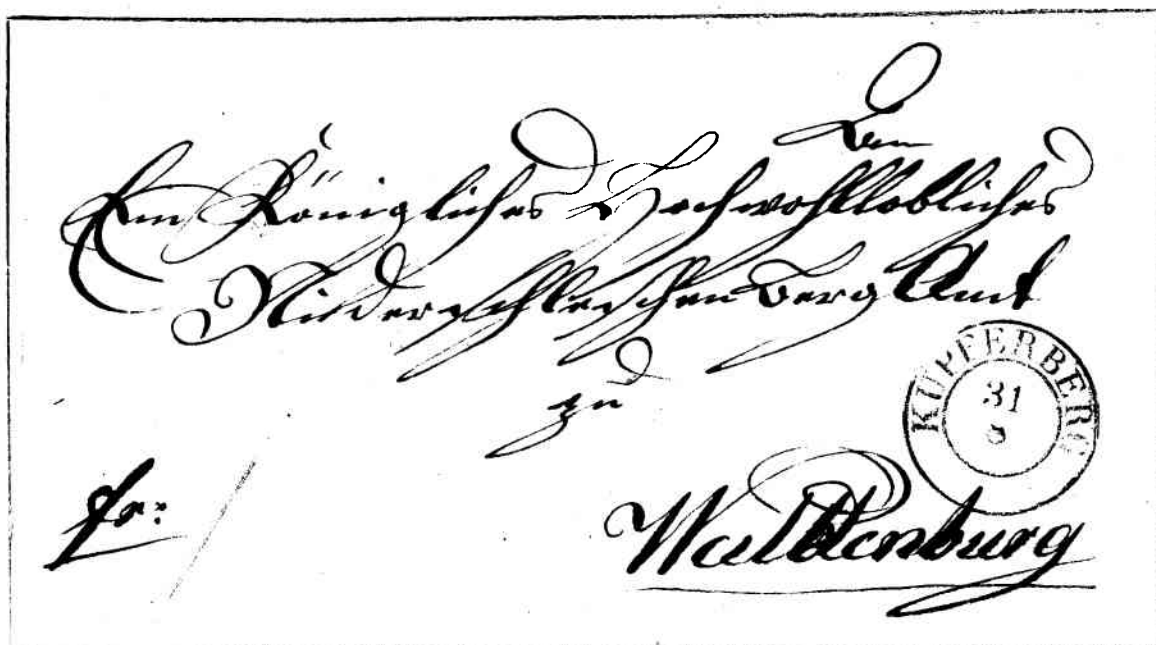 Ein Königliches Hochwohllobliches
Niederschlesischen Berg Amt
zu
KUPFERBERG
31
8
fr:
Waldenburg